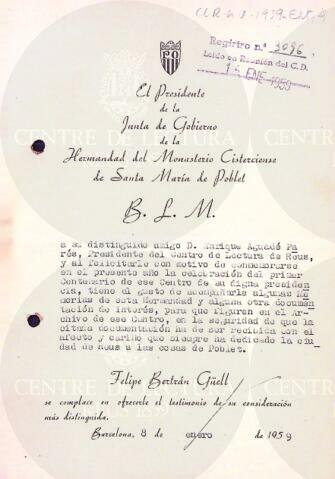 CLR
Registro n.º 3096
Leido en Reunión del C.D.
1 ENE 1959
PO
El Presidente
de la
Junta de Gobierno
de la
Hermandad del Monasterio Cisterciense
de Santa María de Poblet
B. L. M.
a su distinguido amigo D. Enrique Aguadé Pa
rós, Presidente del Centro de Lectura de Reus,
y al felicitarle con motivo de conmemorarse
en el presente año la celebración del primer
Centenario de ese Centro de su digna presiden
cia, tiene el gusto de acompañarle algunas Me
morias de esta Hermandad y alguna otra documen
tación de interés, para que figuren en el Ar-
chivo de ese Centro, en la seguridad de que la
citada documentación ha de ser recibida con el
afecto y cariño que siempre ha dedicado la ciu
dad de Reus a las cosas de Poblet.
Felipe Bertrán Güell
se complace en ofrecerle el testimonio de su consideración
más distinguida.
Barcelona, 8 de enero de 1959
CENTRE DE LECTURA
CENTRE DE LECTURA
REUS 1859